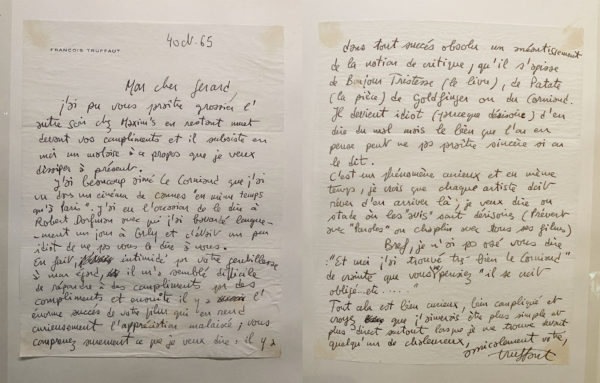 FRANÇOIS TRUFFAUT
4 oct. 65
Mon cher Gérard,
j'ai pu vous paraître grossier l'
autre soir chez Maxim's en restant muet
devant vos compliments et il subsiste en
moi un malaise à ce propos que je veux
dissiper à présent.
J'ai beaucoup aimé le Corniaud que j'ai
vu dans un cinéma de Cannes en même temps
qu'à Paris". j'ai eu l'occasion de le dire à
Robert Dorfmann avec qui j'ai bavardé longue-
-ment un jour à Orly et c'était un peu
idiot de ne pas vous le dire à vous.
En fait, intimidé par votre gentillesse
à mon égard, il m'a semblé difficile
de répondre à des compliments par des
compliments et ensuite il y a l'
énorme succès de votre film qui en rend
curieusement l'appréciation malaisée, vous
comprenez surement ce que je veux dire : il y a
dans tout succès absolu un anéantissement
de la notion de critique, qu'il s'agisse
de Bonjour Tristesse (le livre), de Patate
(la pièce) de Goldfinger ou du Corniaud.
Il devient idiot (parceque dérisoire) d'en
dire du mal mais le bien que l'on en
pense peut ne pas paraître sincère si on
le dit.
C'est un phénomène curieux et en même
temps, je crois que chaque artiste doit
rêver d'en arriver là, je veux dire au
stade où les "avis" sont dérisoires (Prévert
avec "Paroles" ou Chaplin avec tous ses films)
Bref, je n'ai pas osé vous dire
"Et moi j'ai trouvé très bien le Corniaud"
de crainte que vous pensiez "il se croit
obligé etc......"
Tout cela est bien curieux, bien compliqué et
croyez que j'aimerais être plus simple et
plus direct surtout lorsque je me trouve devant
quelqu'un de chaleureux,
amicalement vôtre,
truffaut